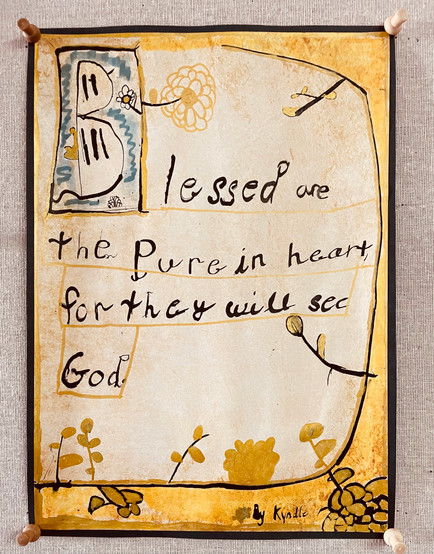 Blessed are
the Pure in heart,
for they will see
God.
By Kyndle